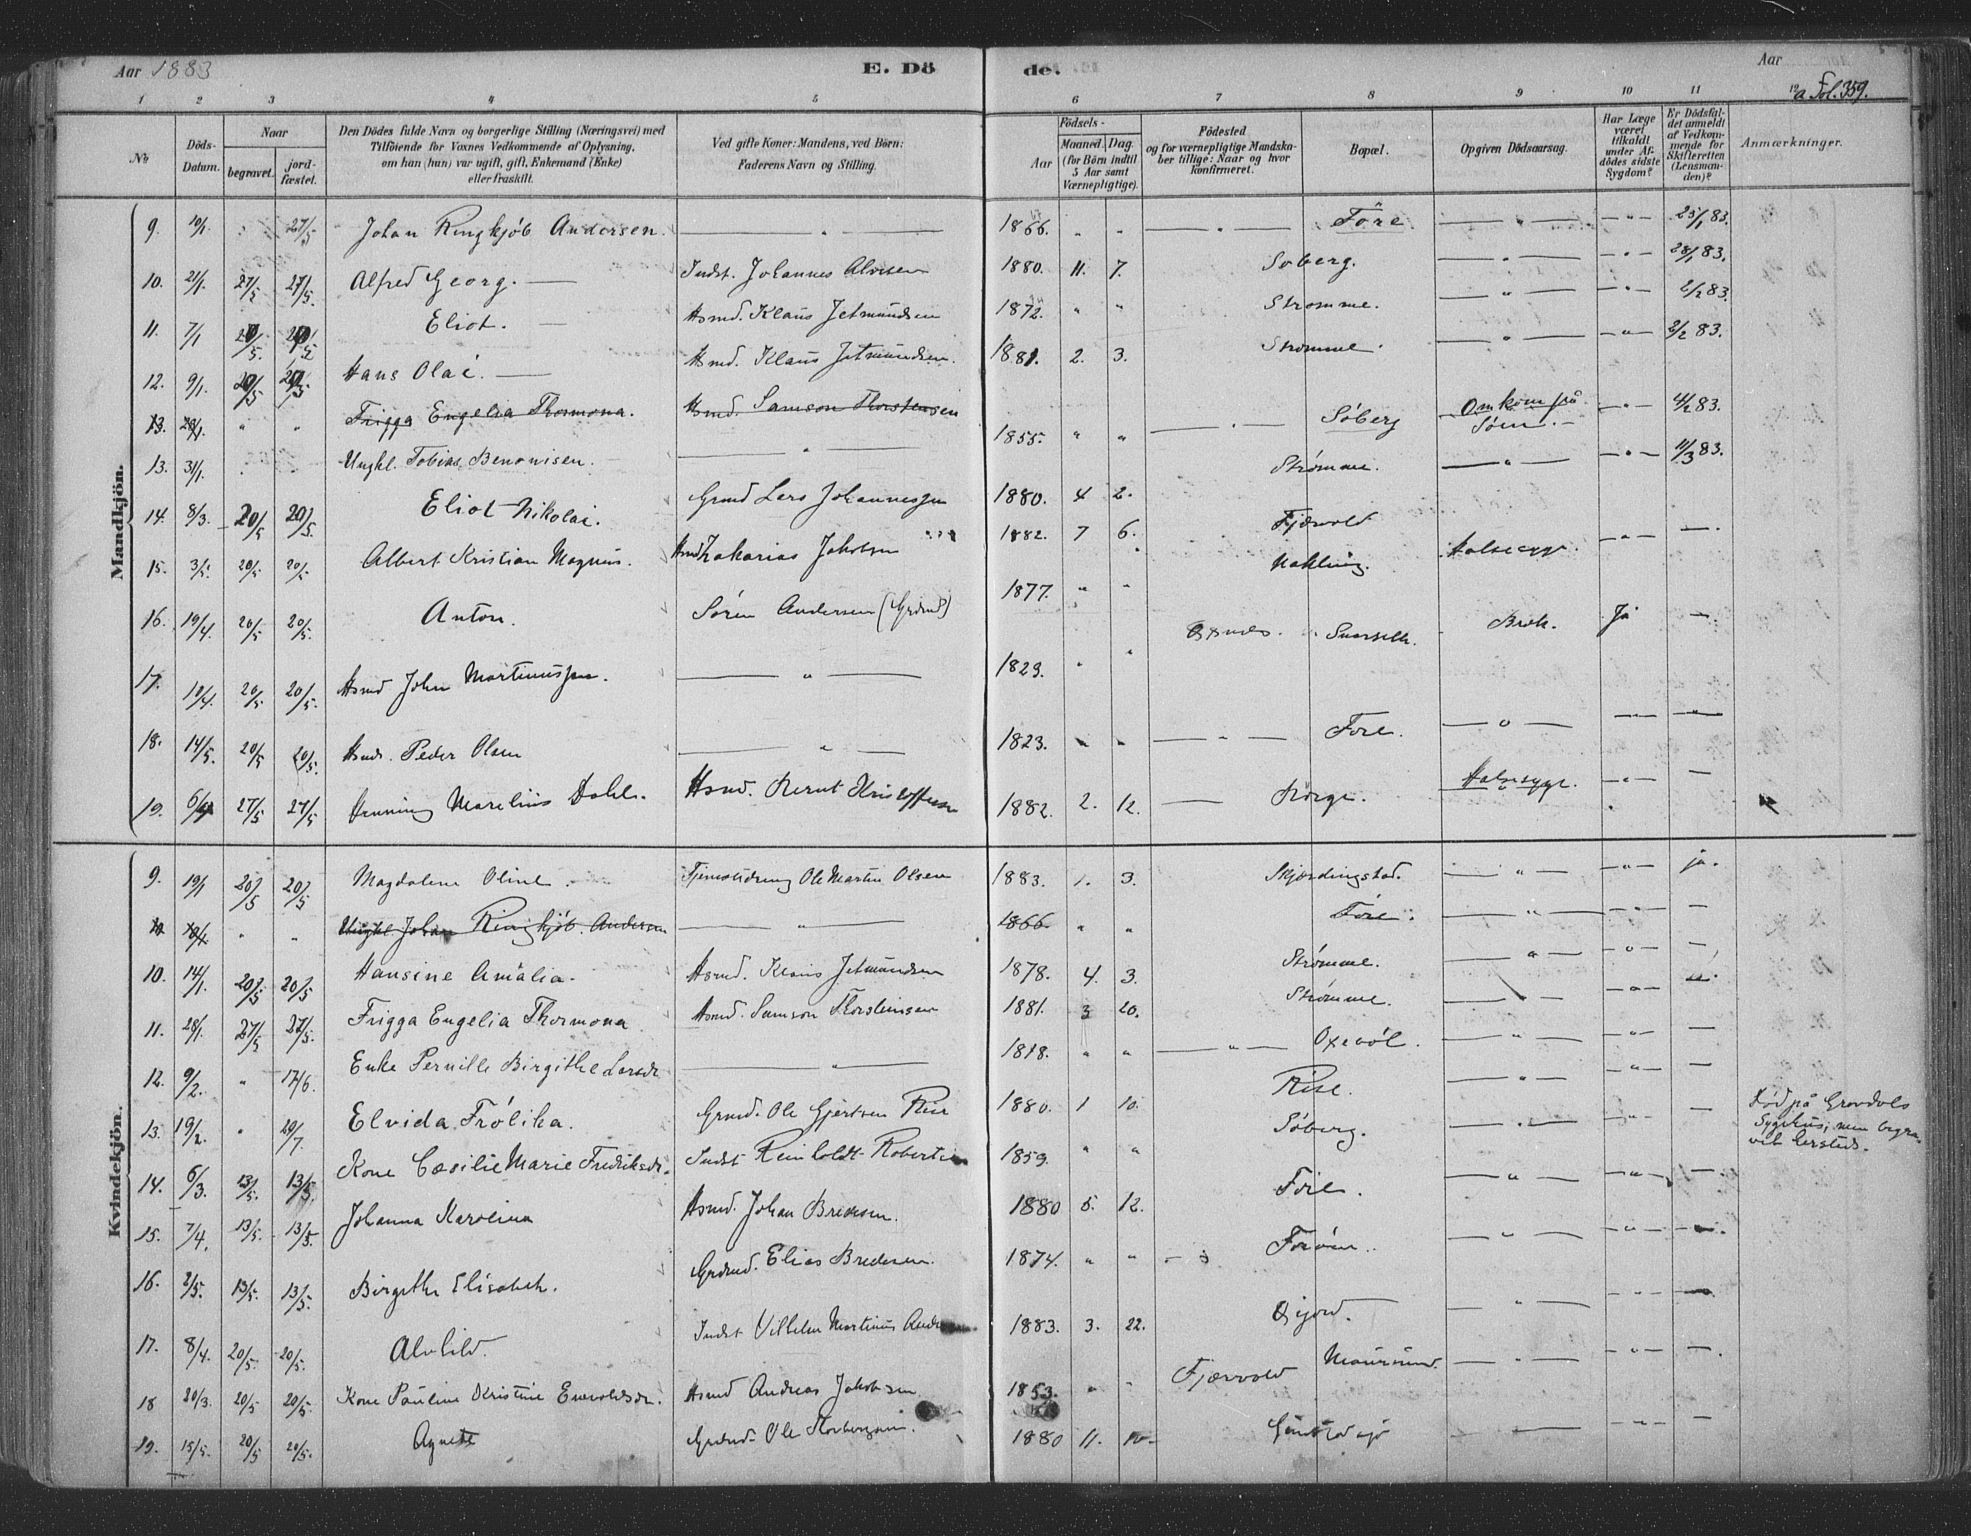 Aar 1883 E. Dö de. Aar
a Fol. 359.
1 2 3 4 5 6 7 8 9 10 11 12
No Döds-Datum. Naar begravet. jordfæstet. Den Dödes fulde Navn og borgerlige Stilling (Næringsvei) med Tilföiende for Voxnes Vedkommende af Oplysning, om han (hun) var ugift, gift, Enkemand (Enke) eller fraskilt. Ved gifte Koner: Mandens, ved Börn: Faderens Navn og Stilling. Födsels- Aar Maaned. Dag. (for Börn indtil 5 Aar samt Værnepligtige). Födested og for værnepligtige Mandskaber tillige: Naar og hvor konfirmeret. Bopæl. Opgiven Dödsaarsag. Har Læge været tilkaldt under Afdödes sidste Sygdom? Er Dödsfaldet anmeldt af Vedkommende for Skifteretten (Lensmanden)? Anmærkninger.
Mandkjön.
9. 10/1. 27/5 Johan Ringkjöb Andersen. — " — 1866. " " — " — Före — " — — " — 25/1 83.
10. 21/1. 27/5 27/5. Alfred Georg. — Indst. Johannes Alvisen 1880. 11. 7. Soberg. — " — — " — 28/1 83.
11. 7/1 20/5. 20/5 Eliot. — Hsmd. Klaus Jetmundsen 1872. " " Strømme. — " — — " — 2/2 83.
12. 9/1. 20/5 20/5. Hans Olai. — Hsmd. Klaus Jetmundsen. 1881. 2. 3. Strømme. — " — — " — 2/2 83.
13. 28/1. " " Frigga Engelia Thormona. Hsmd. Samson Thorstensen
13. 31/1. Ungkl. Tobias Benonisen. — " — 1855. " " — " — Söberg Omkom paa Söen. — — " — 4/2 83.
14. 8/3. 20/5 20/5. Eliot Nikolai. Grmd Lars Johannessen 1880. 4 2. Strömme. — " — — " — 11/3 83.
15. 3/5. 20/5 20/5. Albert Kristian Magnus. Hsmd Zakarias Jakobsen 1882. 7 6. Fjærvold
16. 19/4. 20/5 20/5. Anton. Sören Andersen (Grdmd) 1877. " " Nakling. Halsesyge. — " — —
17. 10/4. 20/5 20/5. Hsmd John Martinussen. — " — 1829. " " Öxnes. Brok. Ja —
18. 14/5. 20/5 20/5. Hsmd. Peder Olsen — " — 1823. " " — " — Före. — " — — —
19. 27/5 27/5 Henning Marelius Dahl. Hsmd. Bernt Kristoffersen 1882. 2. 12. — Halsesyge. — " — —
Kvindekjön.
9. 19/1 20/5 20/5 Magdalene Oline. Tjenestdreng Ole Martin Olsen 1883. 1. 3. Skjærdingstad. — " — — " — ja.
10 10/1. " " Ungkl Johan Ringkjöb. Andersen — " — 1866. " " Före. — " — — " — —
10. 14/1. 20/5 20/5 Hansine Amalia. Hsmd. Klaus Jetmundsen 1878. 4. 3. Strömme. — " — — " — —
11. 28/1. 27/5 27/5. Frigga Engelia Thormona Hsmd. Samson Thorstensen 1881. 3 20. Strömme. — " — — " —
12. 9/2. " 17/6. Enke Pernille Birgithe Larsdr — " — 1818. " " — " — Oxevöl. — " — — " — —
13. 19/2. " 29/7. Elvida Frölika. Grmd. Ole Gjertsen Rise 1880. 1 10. Rise. — " — — " — —
14. 6/3. 13/5. 13/5. Kone Cæsilie Marie Fredriksdr. Indst Reinholdt Robertsen 1859. " " Söberg. — " — — " — — Död på Gravdals Sygehus, men begravet
15. 7/4. 13/5. 13/5. Johanna Karolina Hsmd. Johan Bredesen. 1880 5. 12. Före. — " — — " — —
16. 2/5. 13/5. 13/5. Birgithe Elisabeth. Grdmd. Elias Bredesen. 1874. " " — " — — " — —
17. 8/4. 20/5. 20/5. Alvhild. Indst Vilhelm Martinus 1883. 3. 22. — " — — " — —
18 20/3. 20/5 20/5. Kone Pauline Kristine Enevoldsdr. Hsmd Andreas Jakobsen 1853. " " Fjærvold Maursund. — " — — " — —.
19. 15/5. 20/5 20/5. Agnete Grdmd. Ole 1880 11. — — " — —